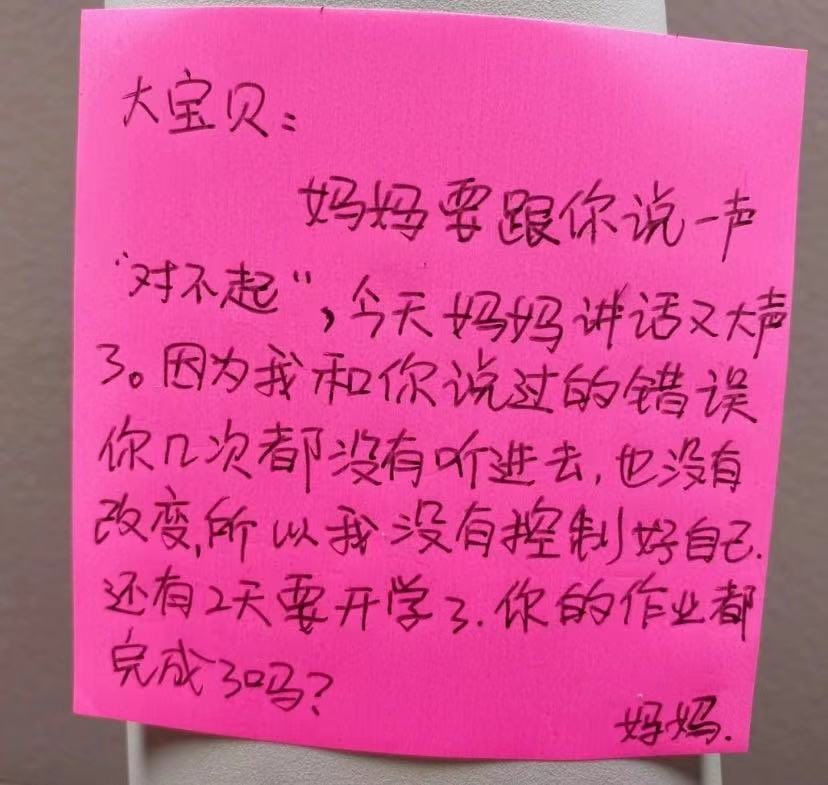 大宝贝：
妈妈要跟你说一声
“对不起”，今天妈妈讲话又大声
了。因为我和你说过的错误
你几次都没有听进去，也没有
改变，所以我没有控制好自己.
还有2天要开学了.你的作业都
完成了吗？
妈妈.